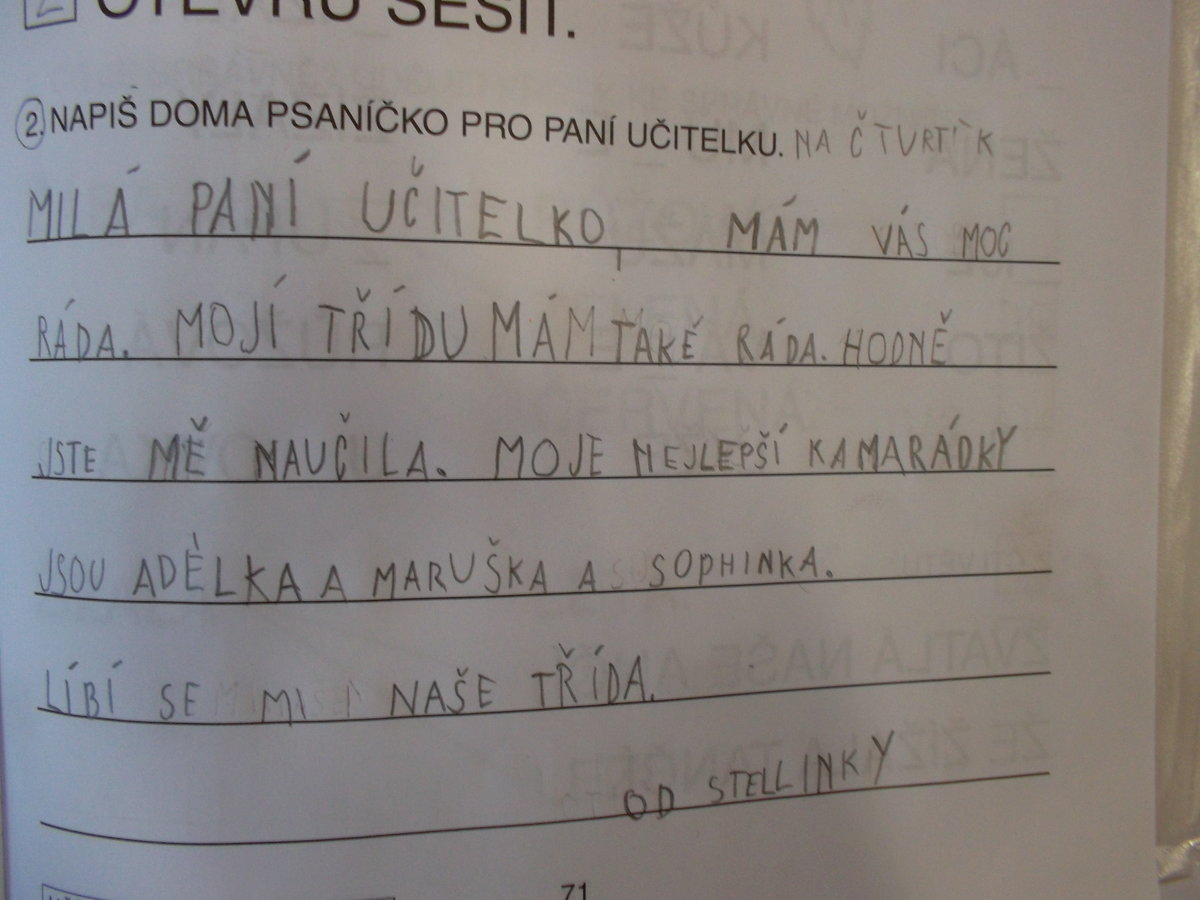 OTEVŘU SEŠIT.
2. NAPIŠ DOMA PSANÍČKO PRO PANÍ UČITELKU. NA ČTVRTÍK
MILÁ PANÍ UČITELKO, MÁM VÁS MOC
RÁDA. MOJÍ TŘÍDU MÁM TAKĚ RÁDA. HODNĚ
JSTE MĚ NAUČILA. MOJE NEJLEPŠÍ KAMARÁDKY
JSOU ADÉLKA A MARUŠKA A SOPHINKA.
LÍBÍ SE MI NAŠE TŘÍDA.
OD STELLINKY
71